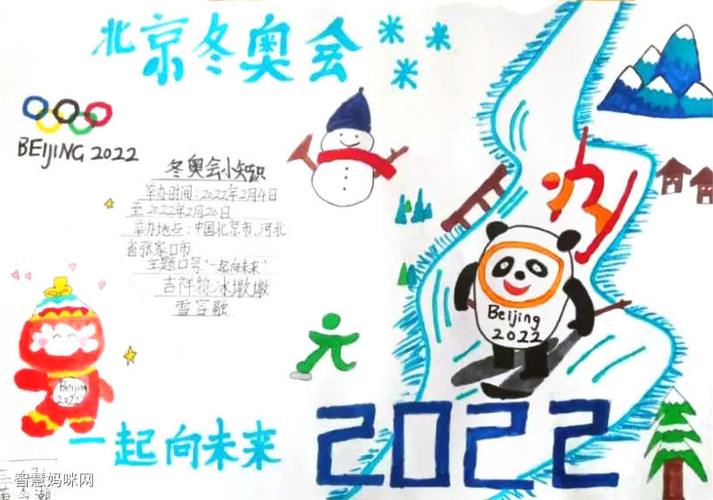 北京冬奥会
BEIJING 2022
冬奥会小知识
举办时间:2022年2月4日
至2022年2月20日
举办地点:中国北京市、河北
省张家口市
主题口号:"一起向未来"
吉祥物冰墩墩
雪容融
Beijing
2022
Beijin
2022
一起向未来
2022
智慧妈咪网